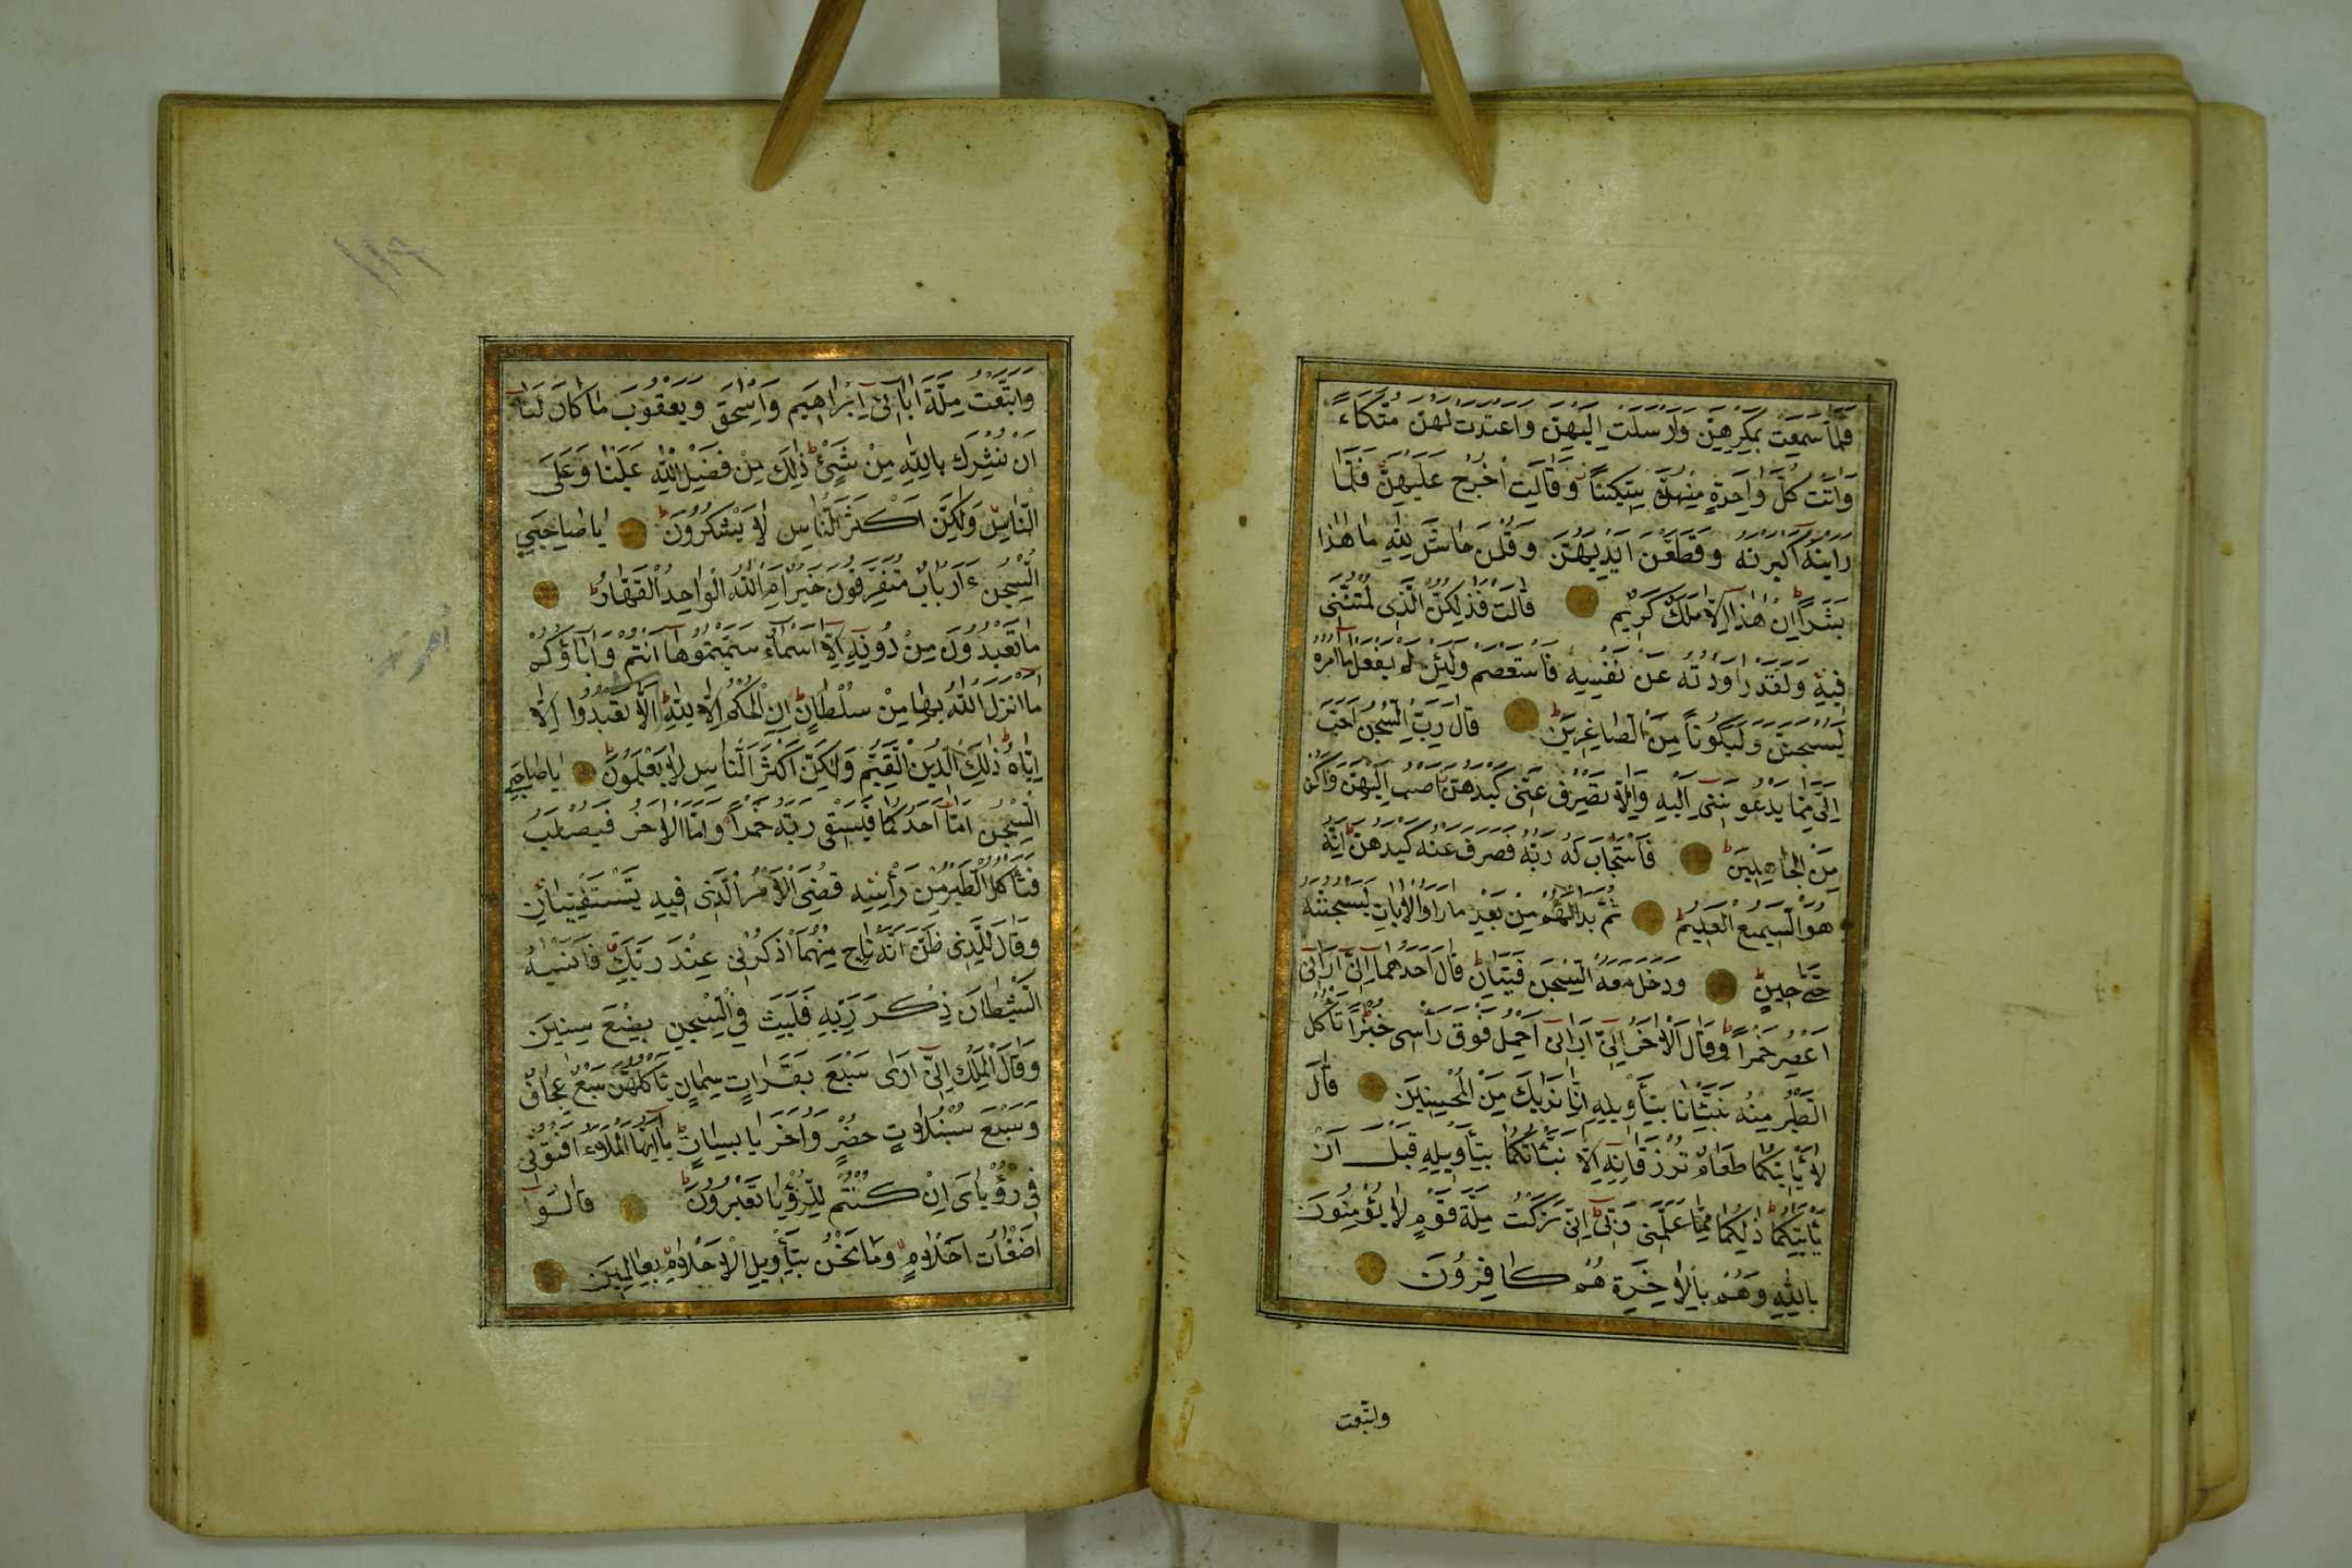 فَلَمَّا سَمِعَتْ بِمَكْرِهِنَّ وَاَرْسَلَتْ اِلَيْهِنَّ وَاَعْتَدَتْ لَهُنَّ مُتَّكَاءً
وَاٰتَتْ كُلَّ وَاحِدَةٍ مِنْهُنَّ سِكّينًا وَقَالَتِ اخْرُجْ عَلَيْهِنَّ فَلَمَّا
رَاَيْنَهُ اَكْبَرْنَهُ وَقَطَّعْنَ اَيْدِيَهُنَّ وَقُلْنَ حَاشَ لِلّٰهِ مَا هٰذَا
بَشَرًاؕ اِنْ هٰذَا اِلَّا مَلَكٌ كَرِيمٌ قَالَتْ فَذٰلِكُنَّ الَّذِى لُمْتُنَّنِى
فِيهِ وَلَقَدْ رَاوَدْتُهُ عَنْ نَفْسِهِ فَاسْتَعْصَمَ وَلَئِنْ لَمْ يَفْعَلْ مَا اٰمُرُهُ
لَيُسْجَنَنَّ وَلَيَكُونًا مِنَ الصَّاغِرِينَؕ قَالَ رَبِّ السِّجْنُ اَحَبُّ
اِلَىَّ مِمَّا يَدْعُونَنِى اِلَيْهِ وَاِلَّا تَصْرِفْ عَنِّى كَيْدَهُنَّ اَصْبُ اِلَيْهِنَّ وَاَكُنْ
مِنَ الْجَاهِلِينَؕ فَاسْتَجَابَ لَهُ رَبُّهُ فَصَرَفَ عَنْهُ كَيْدَهُنَّؕ اِنَّهُ
هُوَ السَّمِيعُ الْعَلِيمُؕ ثُمَّ بَدَا لَهُمْ مِنْ بَعْدِ مَا رَاَوُا الْاٰيَاتِ لَيَسْجُنُنَّهُ
حَتّٰى حِينٍؕ وَدَخَلَ مَعَهُ السِّجْنَ فَتَيَانِؕ قَالَ اَحَدُهُمَا اِنِّى اَرَانِى
اَعْصِرُ خَمْرًاؕ وَقَالَ الْاٰخَرُ اِنِّى اَرَانِى اَحْمِلُ فَوْقَ رَأْسِى خُبْزًا تَأْكُلُ
الطَّيْرُ مِنْهُ نَبِّئْنَا بِتَأْوِيلِهِ اِنَّا نَرٰيكَ مِنَ الْمُحْسِنِينَ قَالَ
لَا يَأْتِيكُمَا طَعَامٌ تُرْزَقَانِهِ اِلَّا نَبَّأْتُكُمَا بِتَأْوِيلِهِ قَبْلَ اَنْ
يَأْتِيَكُمَاؕ ذٰلِكُمَا مِمَّا عَلَّمَنِى رَبِّىؕ اِنِّى تَرَكْتُ مِلَّةَ قَوْمٍ لَا يُؤْمِنُونَ
بِاللّٰهِ وَهُمْ بِالْاٰخِرَةِ هُمْ كَافِرُونَ
واتبعت
وَاتَّبَعْتُ مِلَّةَ اٰبَائِى اِبْرَاهِيمَ وَاِسْحٰقَ وَيَعْقُوبَ مَا كَانَ لَنَا
اَنْ نُشْرِكَ بِاللّٰهِ مِنْ شَىْءٍؕ ذٰلِكَ مِنْ فَضْلِ اللّٰهِ عَلَيْنَا وَعَلَى
النَّاسِ وَلٰكِنَّ اَكْثَرَ النَّاسِ لَا يَشْكُرُونَؕ يَا صَاحِبَىِ
السِّجْنِ ءَاَرْبَابٌ مُتَفَرِّقُونَ خَيْرٌ اَمِ اللّٰهُ الْوَاحِدُ الْقَهَّارُؕ
مَا تَعْبُدُونَ مِنْ دُونِهِ اِلَّا اَسْمَاءً سَمَّيْتُمُوهَا اَنْتُمْ وَاٰبَاؤُكُمْ
مَا اَنْزَلَ اللّٰهُ بِهَا مِنْ سُلْطَانٍؕ اِنِ الْحُكْمُ اِلَّا لِلّٰهِؕ اَلَّا تَعْبُدُوا اِلَّا
اِيَّاهُؕ ذٰلِكَ الدِّينُ الْقَيِّمُ وَلٰكِنَّ اَكْثَرَ النَّاسِ لَا يَعْلَمُونَؕ يَا صَاحِبَىِ
السِّجْنِ اَمَّا اَحَدُكُمَا فَيَسْقِى رَبَّهُ خَمْرًا وَاَمَّا الْاٰخَرُ فَيُصْلَبُ
فَتَأْكُلُ الطَّيْرُ مِنْ رَأْسِهِ قُضِىَ الْاَمْرُ الَّذِى فِيهِ تَسْتَفْتِيَانِ
وَقَالَ لِلَّذِى ظَنَّ اَنَّهُ نَاجٍ مِنْهُمَا اذْكُرْنِى عِنْدَ رَبِّكَ فَاَنْسٰيهُ
الشَّيْطَانُ ذِكْرَ رَبِّهِ فَلَبِثَ فِى السِّجْنِ بِضْعَ سِنِينَ
وَقَالَ الْمَلِكُ اِنِّى اَرٰى سَبْعَ بَقَرَاتٍ سِمَانٍ يَأْكُلُهُنَّ سَبْعٌ عِجَافٌ
وَسَبْعَ سُنْبُلَاتٍ خُضْرٍ وَاُخَرَ يَابِسَاتٍؕ يَا اَيُّهَا الْمَلَاءُ اَفْتُونِى
فِى رُؤْيَاىَ اِنْ كُنْتُمْ لِلرُّؤْيَا تَعْبُرُونَؕ قَالُوا
اَضْغَاثُ اَحْلَامٍ وَمَا نَحْنُ بِتَأْوِيلِ الْاَحْلَامِ بِعَالِمِينَ